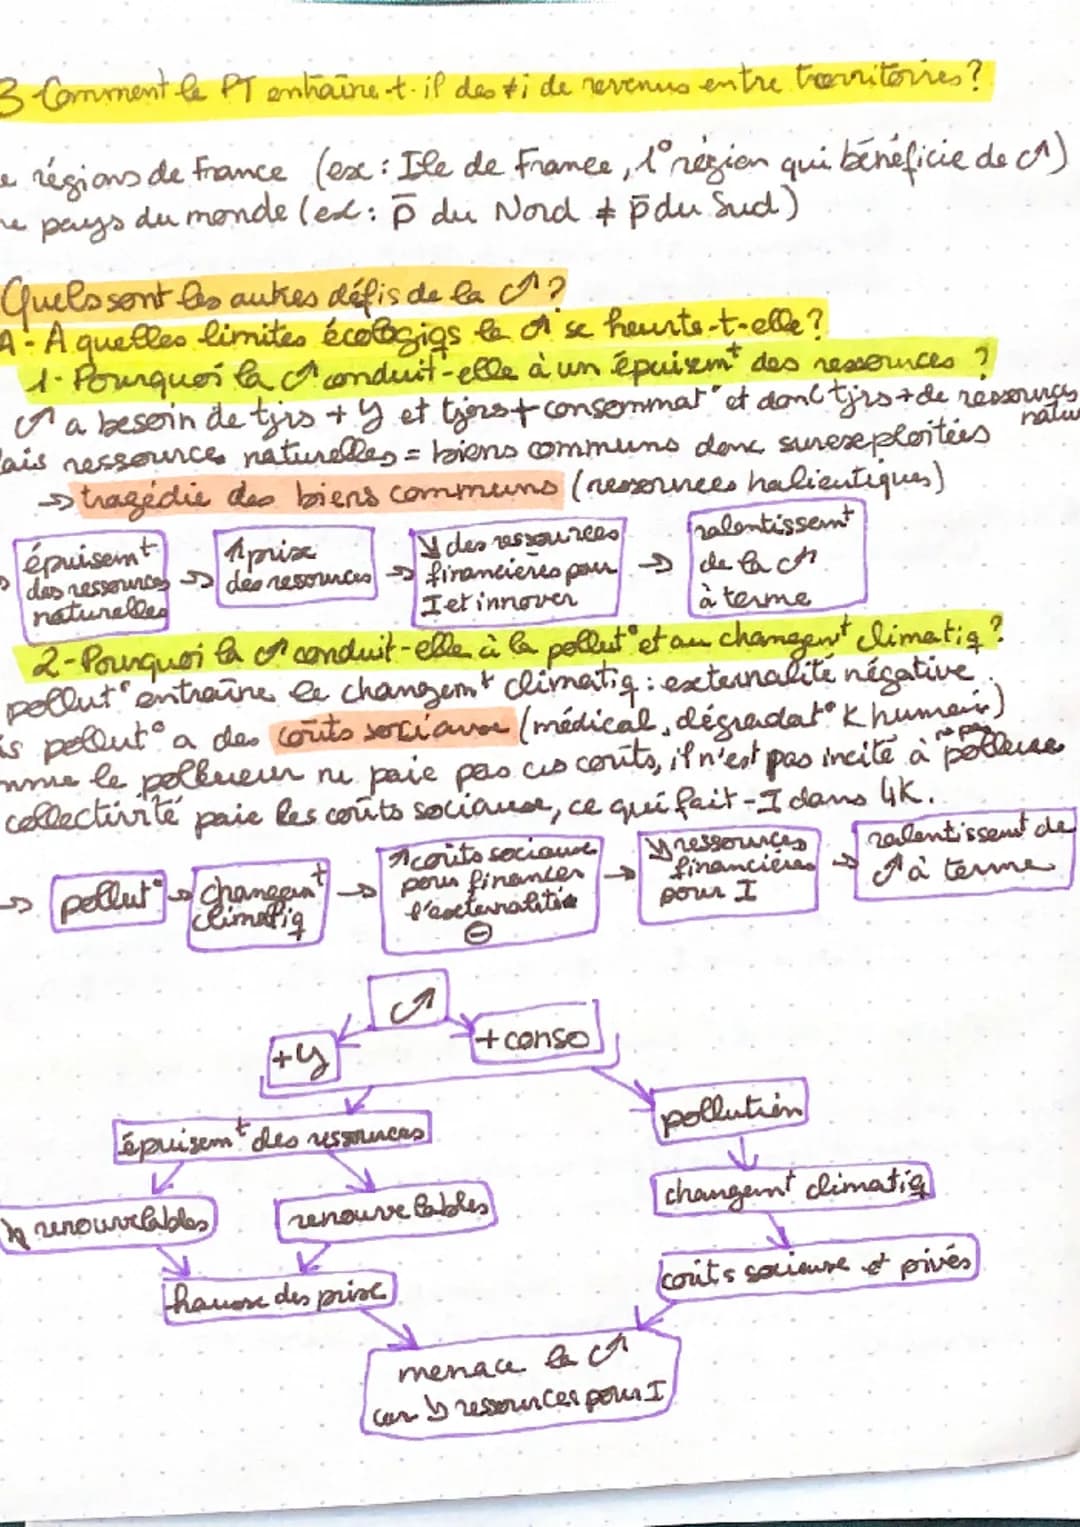 3-Comment le PT entraîne-t-il des ≠i de revenus entre territoires?
e régions de France (ex: Ile de France, 1° région qui bénéficie de C↗)
re pays du monde (ex: p̅ du Nord ≠ p̅ du Sud)
Quels sont les autres défis de la C↗?
A-A quelles limites écologiqs la C↗ se heurte-t-elle?
1-Pourquoi la C↗ conduit-elle à un épuisemt des ressources ?
C↗ a besoin de tjrs + Y et tjrs + consommat° et donc tjrs + de ressources
natu
ais ressources naturelles = biens communs donc surexploitées
→ tragédie des biens communs (ressources halieutiques)
épuisemt
des ressources
naturelles
→ ↗ prix
des ressources
→ ↘ des ressources
financières pour
I et innover
→ ralentissemt
de la C↗
à terme
2-Pourquoi la C↗ conduit-elle à la pollut° et au changemt climatiq?
pollut° entraîne le changemt climatiq: externalité négative.
is pollut° a des coûts sociaux (médical, dégradat° K humain)
mme le pollueur ne paie pas ces coûts, il n'est pas incité à ne pas polluer
collectivité paie les coûts sociaux, ce qui fait -I dans 4K.
→ pollut° → changemt
climatiq
→ ↗ coûts sociaux
pour financer
l'externalité
⊖
→ ↘ ressources
financières
pour I
→ ralentissemt de
C↗ à terme
C↗
+Y
+conso
épuisemt des ressources
pollution
renouvelables
renouvelables
changemt climatiq
hausse des prix
coûts sociaux et privés
menace la C↗
car ↘ ressources pour I